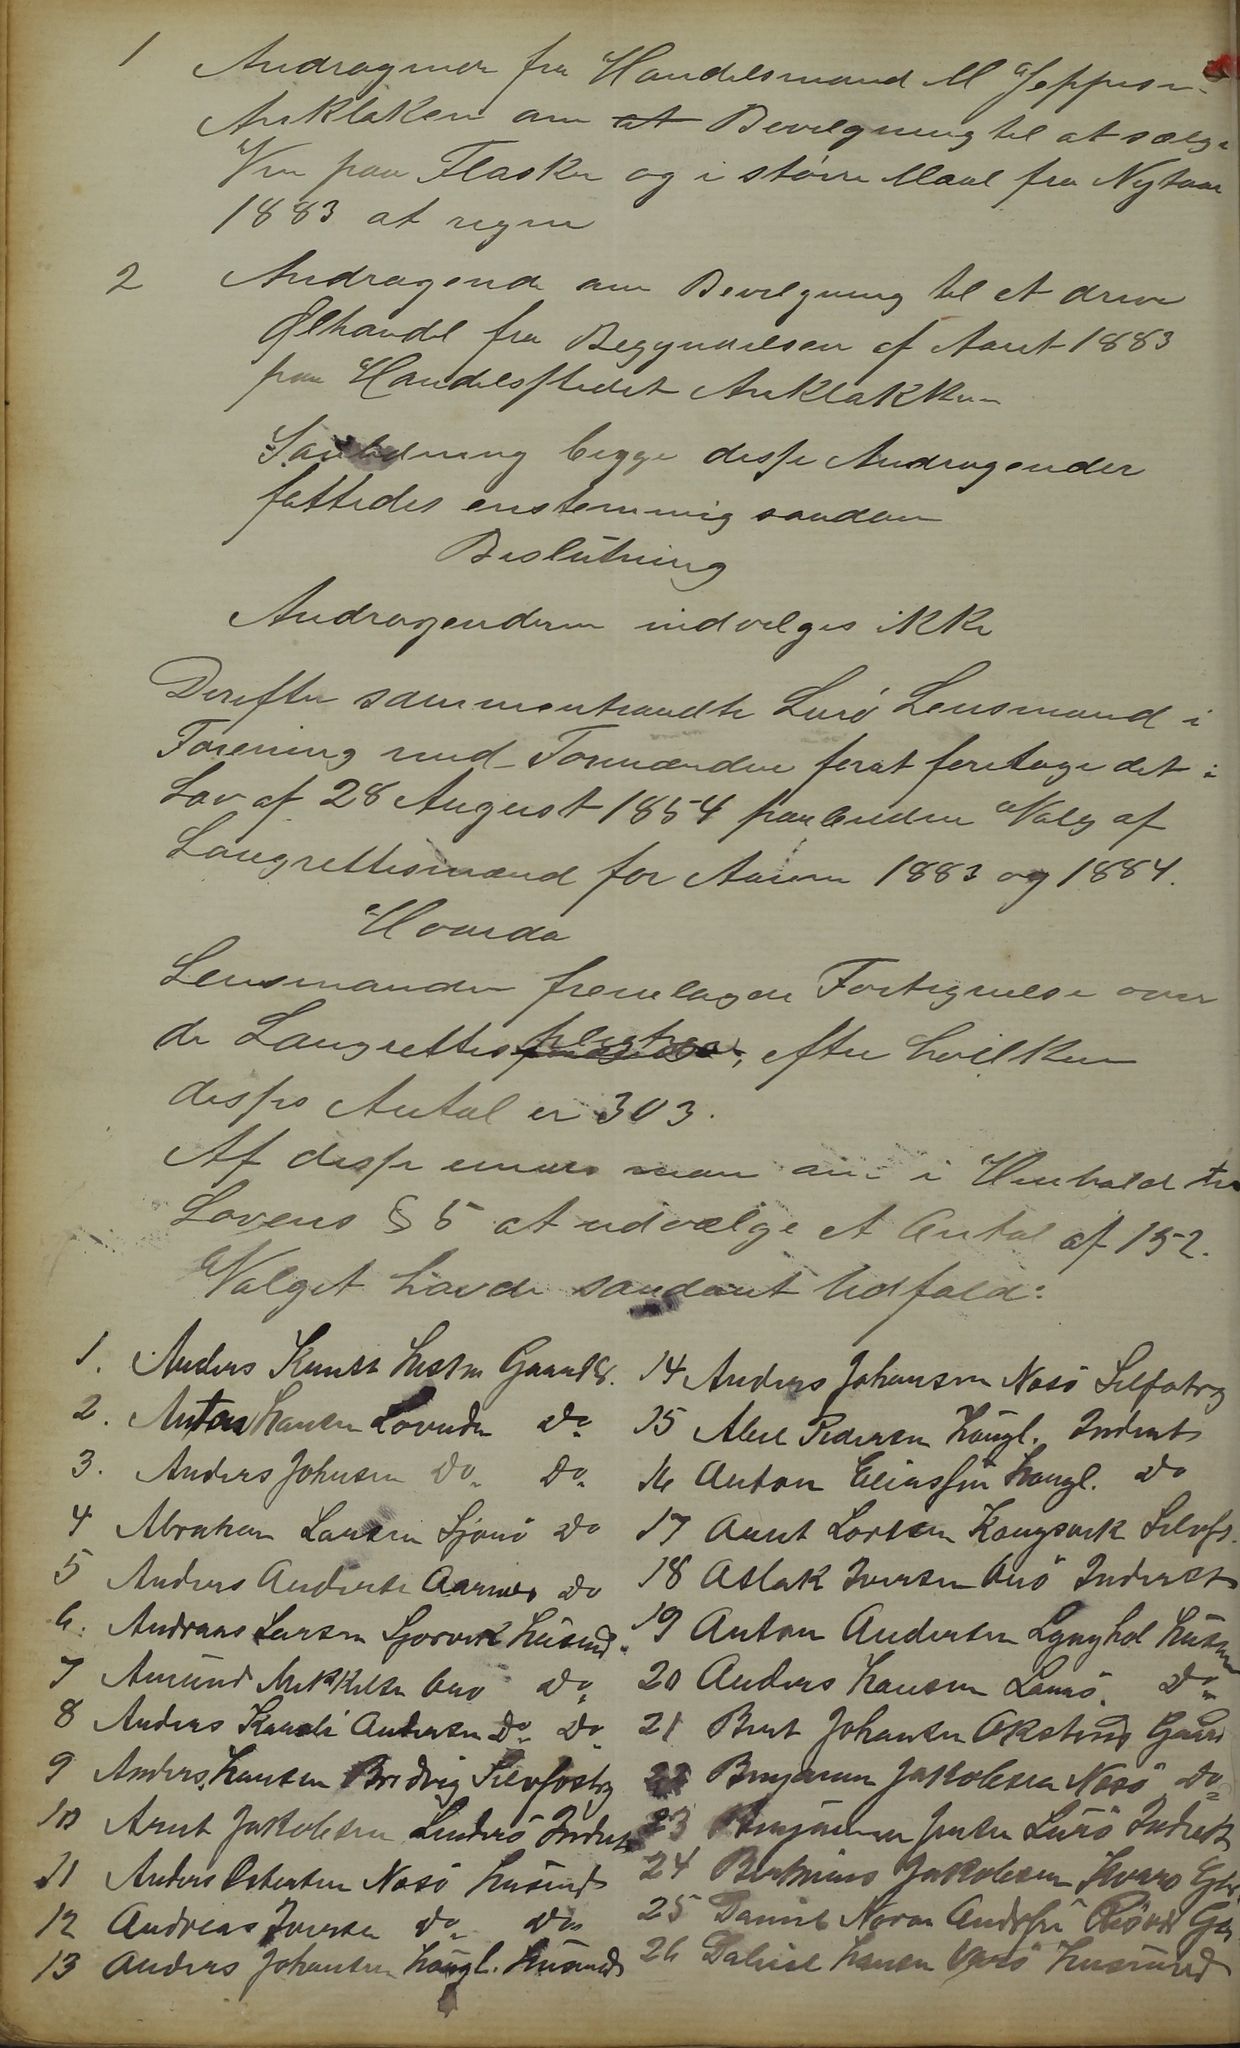 1 Andragende fra Handelsmand M Jeppesen
Anklaken om at Bevilgning til at sælge
Vin paa Flasker og i større Maal fra Nytaar
1883 at regne
2 Andragende om Bevilgning til at drive
Ølhandel fra Begyndelsen af Aaret 1883
paa Handelsstedet Anklakken
begge disse Andragender
fattedes enstemmig saadan
Beslutning
Andragenderne indvilges ikke
Derefter sammentraadte Lurø Lensmand i
Forening med Formændene forat foretage det i
Lov af 28 August 1854 paabudne Valg af
Laugrettesmænd for Aarene 1883 og 1884.
Hvorda
Lensmanden fremlagde Fortegnelse over
de Laugrettes pligtige, efter hvilken
disses Antal er 303.
Af disse man i Henhold til
Lovens § 5 at udvælge et Antal af 152.
Valget havde saadant Udfald:
1. Anders Hestm Gaardb.
2. Anton Hansen Lovunden Do
3. Anders Johnsen Do Do
4 Abraham Larsen Sjonø Do
5 Anders Anderse Aarnes Do
6. Andreas Larsen Sjorvik Husmd.
7 Amund Mikkelsen Do
8 Anders Karoli Andersen Do Do
9 Anders Hansen Bredvig Selvfostrg
10 Arnt Jakobsen Inderst
11 Anders Nesø Husmd
12 Andreas Iversen Do Do
13 Anders Johansen Haugl. Husmd
14 Anders Johansen Nesø Selfostrg
15 Abel Pedersen Haugl. Inderst
16 Anton Eliassen Haugl. Do
17 Arnt Larsen Kongsvik Selvfs.
18 Aslak Iversen Inderst
19 Anton Andersen Lynghol Husm
20 Anders Hansen Do
21 Bent Johansen Gaard
22 Benjamin Jakobsen Nesø Do
23 Benjamin Jensen Lurø Inderst
24 Jakobsen Kvarø
25 Daniel
26 Hansen Husmd